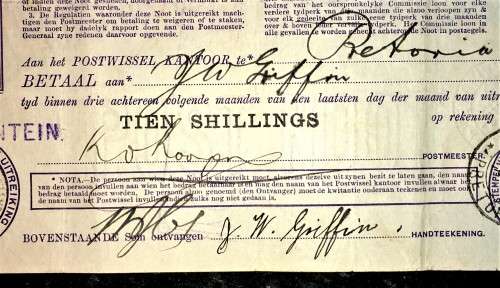 houder of vernietigd of vermink is
betaling geweigerd worden.
3. De Regulatien waaronder deze Noot is uitgereikt machtigen den Postmeester betaling te weigeren of te staken, maar moet hy dadelyk rapport doen aan den Postmeester-Generaal zyne redenen daarvoor opgevende.
bedrag van het oorspronkelyke Commissie loon voor elke verdere tydperk van drie maanden
van drie maanden die alzoo verloopen zyn of voor elk gedeelte van zulke tydperk van drie maanden over
is. De Commissie loon moet in alle gevallen te worden gehecht aan
deze Noot in postzegels.
Aan het POSTWISSEL KANTOOR te* Pretoria
BETAAL aan* J W Griffin
tyd binnen drie achtereen volgende maanden van den laatsten dag der maand van uitr
TIEN SHILLINGS op rekening
NTEIN
POSTMEESTER
* NOTA.—De persoon aan wien deze Noot is uitgereikt moet, alvorens dezelve uit zynen bezit te laten gaan, den naam
van den persoon invullen aan wien het bedrag betaalbaar is en mag den naam van het Postwissel kantoor invullen alwaar het
bedrag betaald moet worden. De persoon alzoo genoemd (den Ontvanger) moet de kwitantie onderaan teekenen en moet de naam
van het Postwissel kantoor invullen indien zulks nog niet gedaan is.
BOVENSTAANDE Som ontvangen J. W. Griffin. HANDTEEKENING.
UITREIKING
STEMPEL
PRE